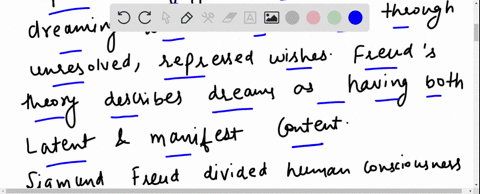 dreaming through
unresolved, repressed wishes. Freud's
theory describes dreams as having both
Latent & manifest Content.
Sigmund Freud divided human consciousness